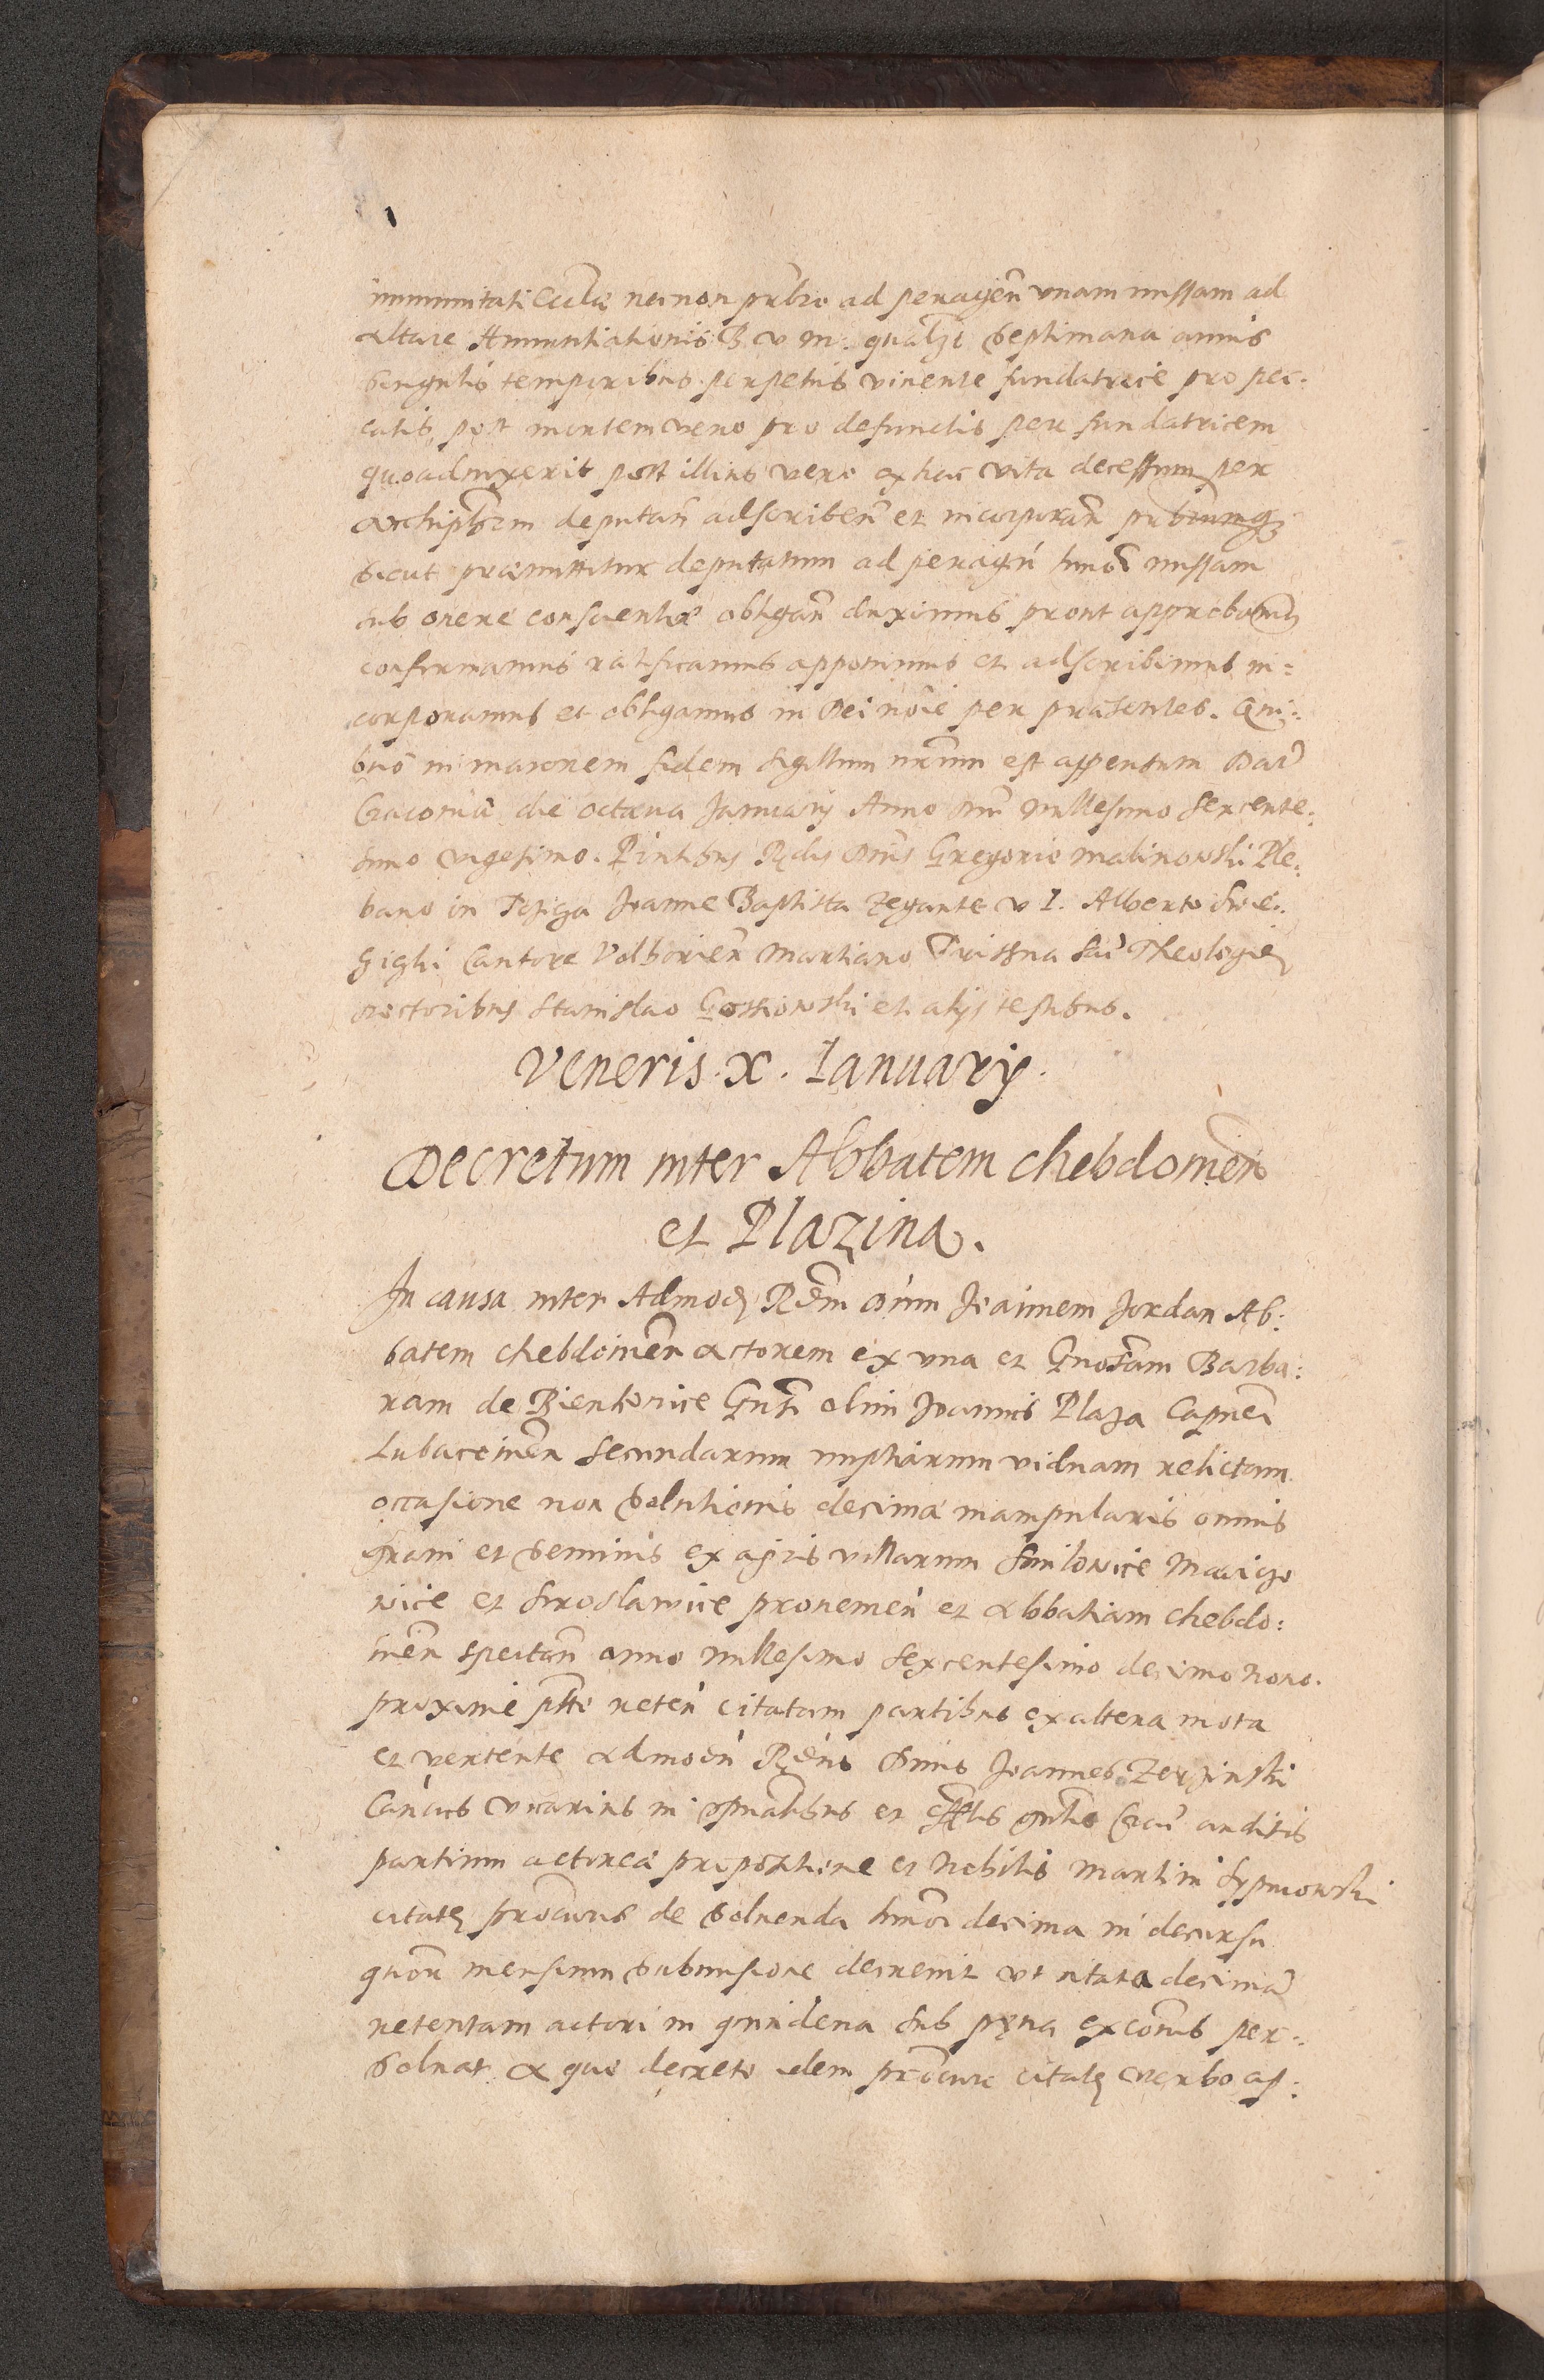 immunitati Ecclæ necnon prbro ad peragen̄ vnam missam ad
altare Annuntiationis B. V. M. qualzt septimana annis
singulis temporibus perpetuis viuente fundatrice pro pec:
catis, post mortem vero pro defunctis per fundatricem
quoaduixerit post illius vero ex hac vita decessum per
Archiprbrm deputan̄ adscriben̄ et incorporan̄ prbrumq
sicut præmittitur deputatum ad peragen̄ hmōi missam
sub onere conscientiæ obligan̄ duximus prout approbamus
confirmamus ratificamus apponimus et adscribimus in=
corporamus et obligamus in Dei nōie per præsentes. Qui:
bus in maiorem fidem sigillum nr̄um est appensum Dat̄
Cracouiæ die octaua Januarij Anno Dnī millesimo sexcente:
simo vigesimo. Pn̄tibus Rdis Dnis Gregorio Malinowski Ple:
bano in Joanne Baptista Zegante V I. Alberto
Cantore Volborien̄ Martiano Sac̄ Theologiæ
Doctoribus Stanislao et alijs testibus.
Veneris. X. Ianuarij.
Decretum inter Abbatem Chebdomen̄
et Plazina.
In causa inter Admod Rdm Dnūm Joannem Jordan Ab:
batem Chebdomen̄ Actorem ex una et Gnosam Barba:
ram de Bienkowice Gnsi olim Joannis Plaza Capnei
Lubacoinen̄ secundarum nuptiarum viduam relictam
occasione non solutionis decimæ manipularis omnis
grani et seminis ex agris villarum Smilowice
wice et Siroslawice prouenien̄ et Abbatiam Chebdo:
men̄ spectan̄ anno millesimo sexcentesimo decimo nono.
proxime ptto reten̄ citatam partibus ex altera mota
et vertente Admodn̄ Rdns Dnus Joannes
Cancus Vicarius in spnalibus et offlis gnlis Crac̄ auditis
partium actoreæ propositione et Nobilis Martini Lypniowski
citatæ procuris de soluenda hmōi decima in decursu
quor̄ mensium submissione decreuit vt citata decimā
retentam actori in quindena sub pęna excōnis per:
soluat. A quo decreto idem procur citatæ verbo ap: